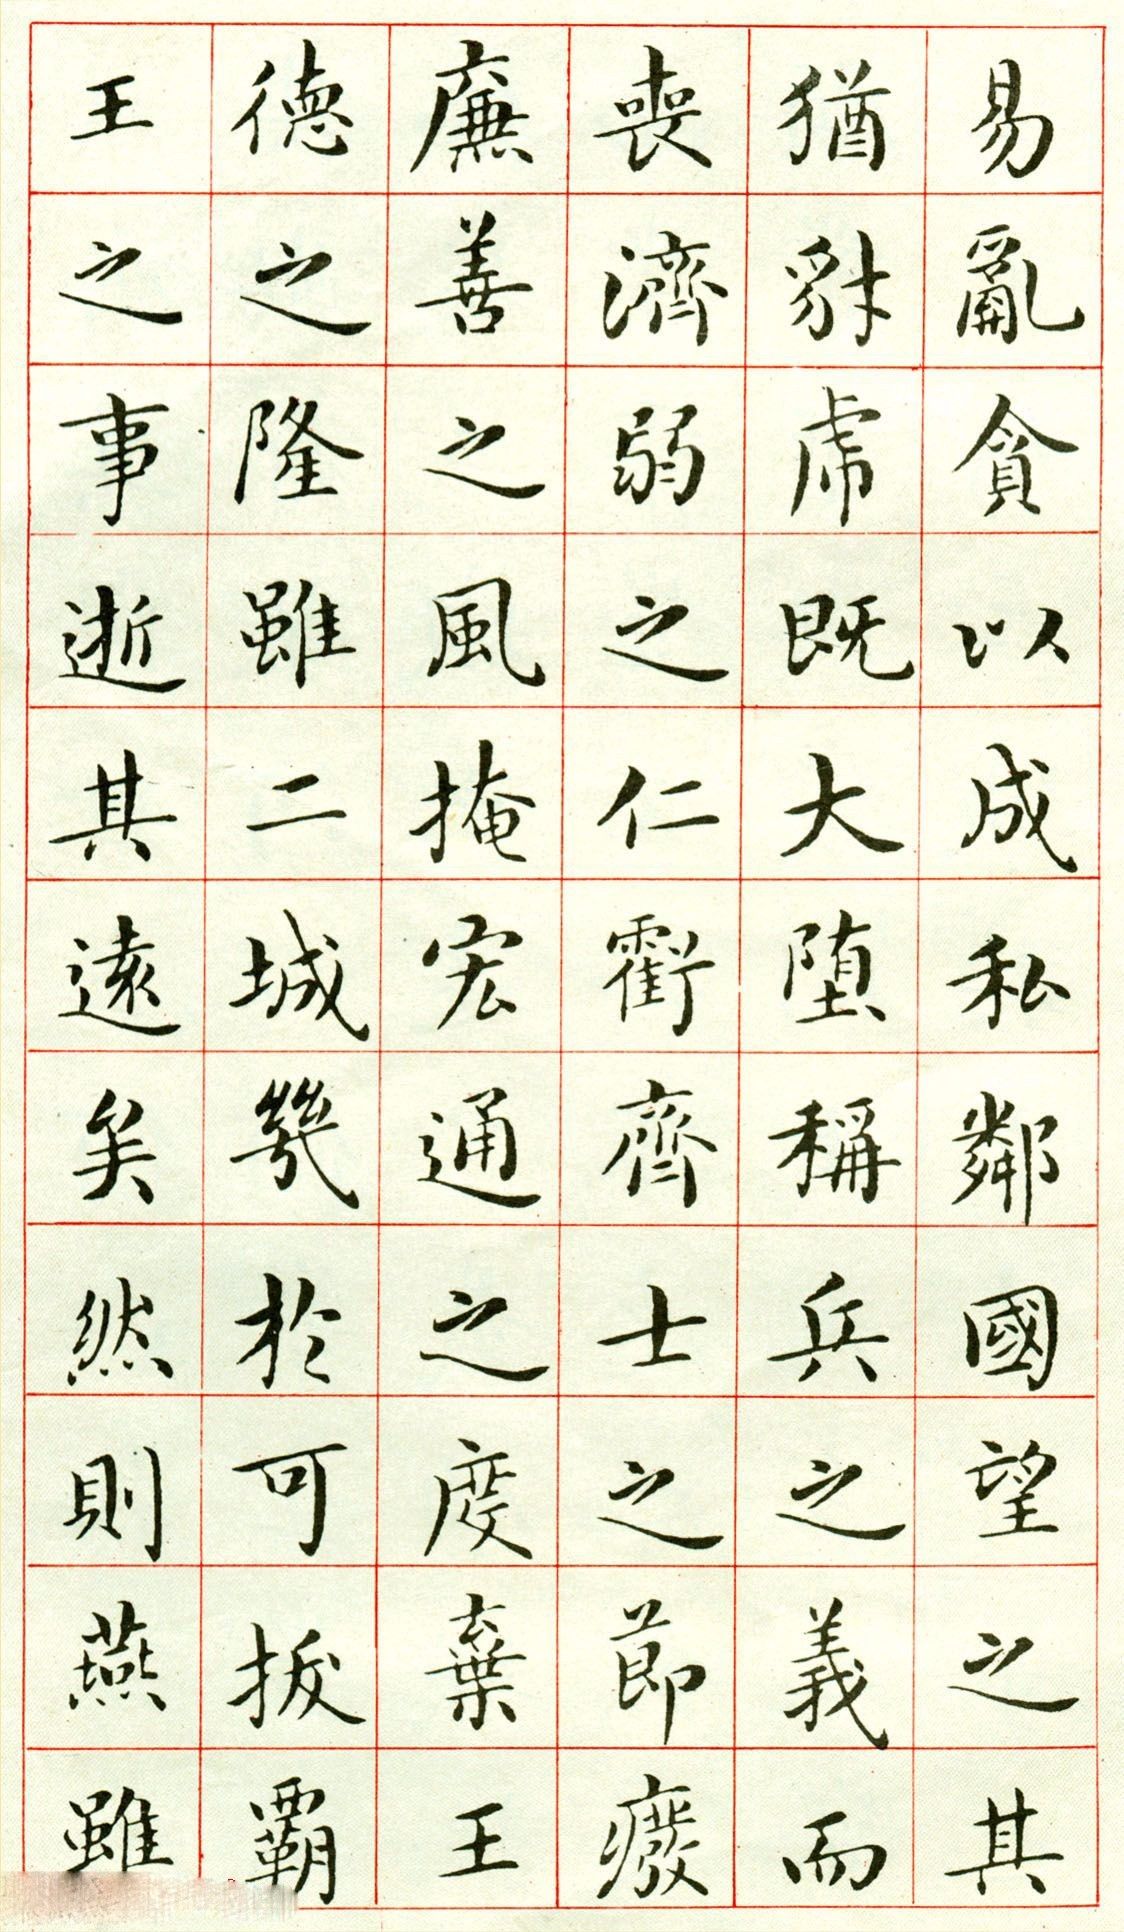 易亂貪以成私鄰國望之其
猶豺虎既大墮稱兵之義而
喪濟弱之仁虧齊士之節廢
廉善之風掩宏通之度棄王
德之隆雖二城幾於可拔霸
王之事逝其遠矣然則燕雖